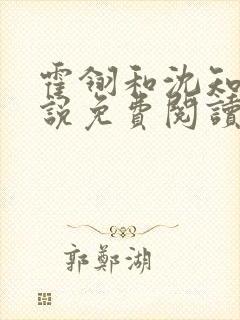 霍翎和沈知
說免費閱讀
郭鄭湖